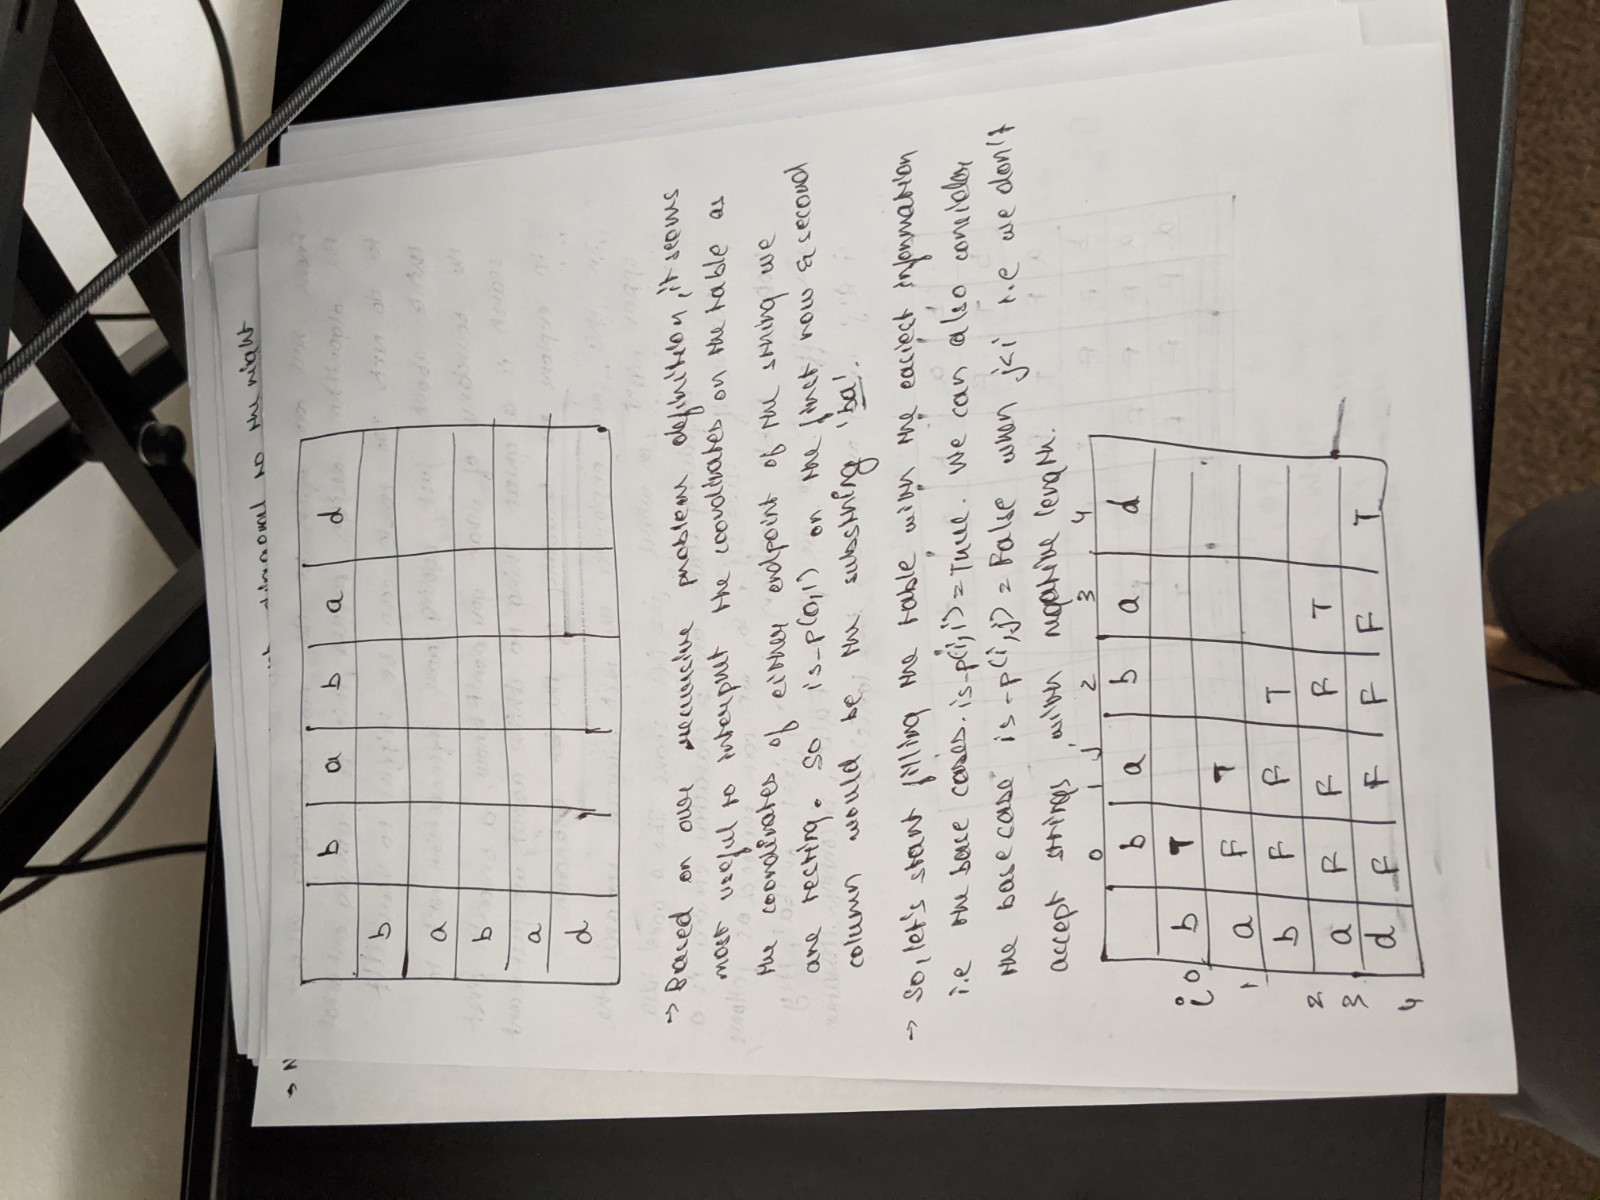 diagonal to the right
→ N
b a b a d
b
a
b
a
d
→ Based on our recursive problem definition, it seems
most useful to interpret the coordinates on the table as
the coordinates of either endpoint of the string we
are testing. So is-p(0,1) on the first row & second
column would be the substring 'ba'.
→ So, let's start filling the table with the easiest information
i.e the base cases. is-p(i,i) = True. We can also consider
the base case is-p(i,j) = False when j<i i.e we don't
accept strings with negative length.
0 1 j 2 3 4
b a b a d
i 0 b T
1 a F T
2 b F F T
3 a F F F T
4 d F F F F T